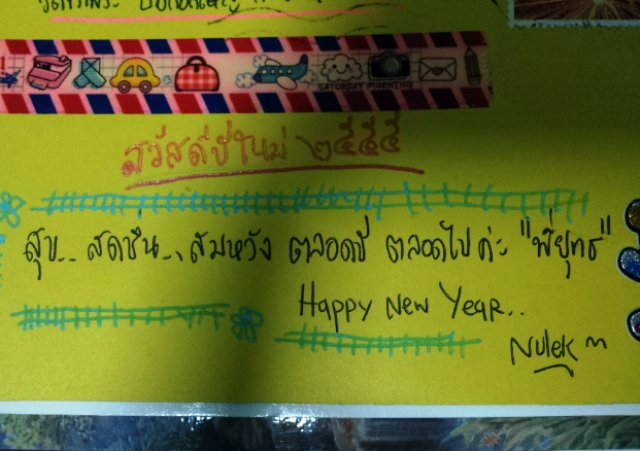 SATURDAY MORNING
สวัสดีปีใหม่ ๒๕๕๕
สุข... สดชื่น..., สมหวัง ตลอดปี ตลอดไป ค่ะ "พี่ยุทธ"
Happy New Year..
Nulek